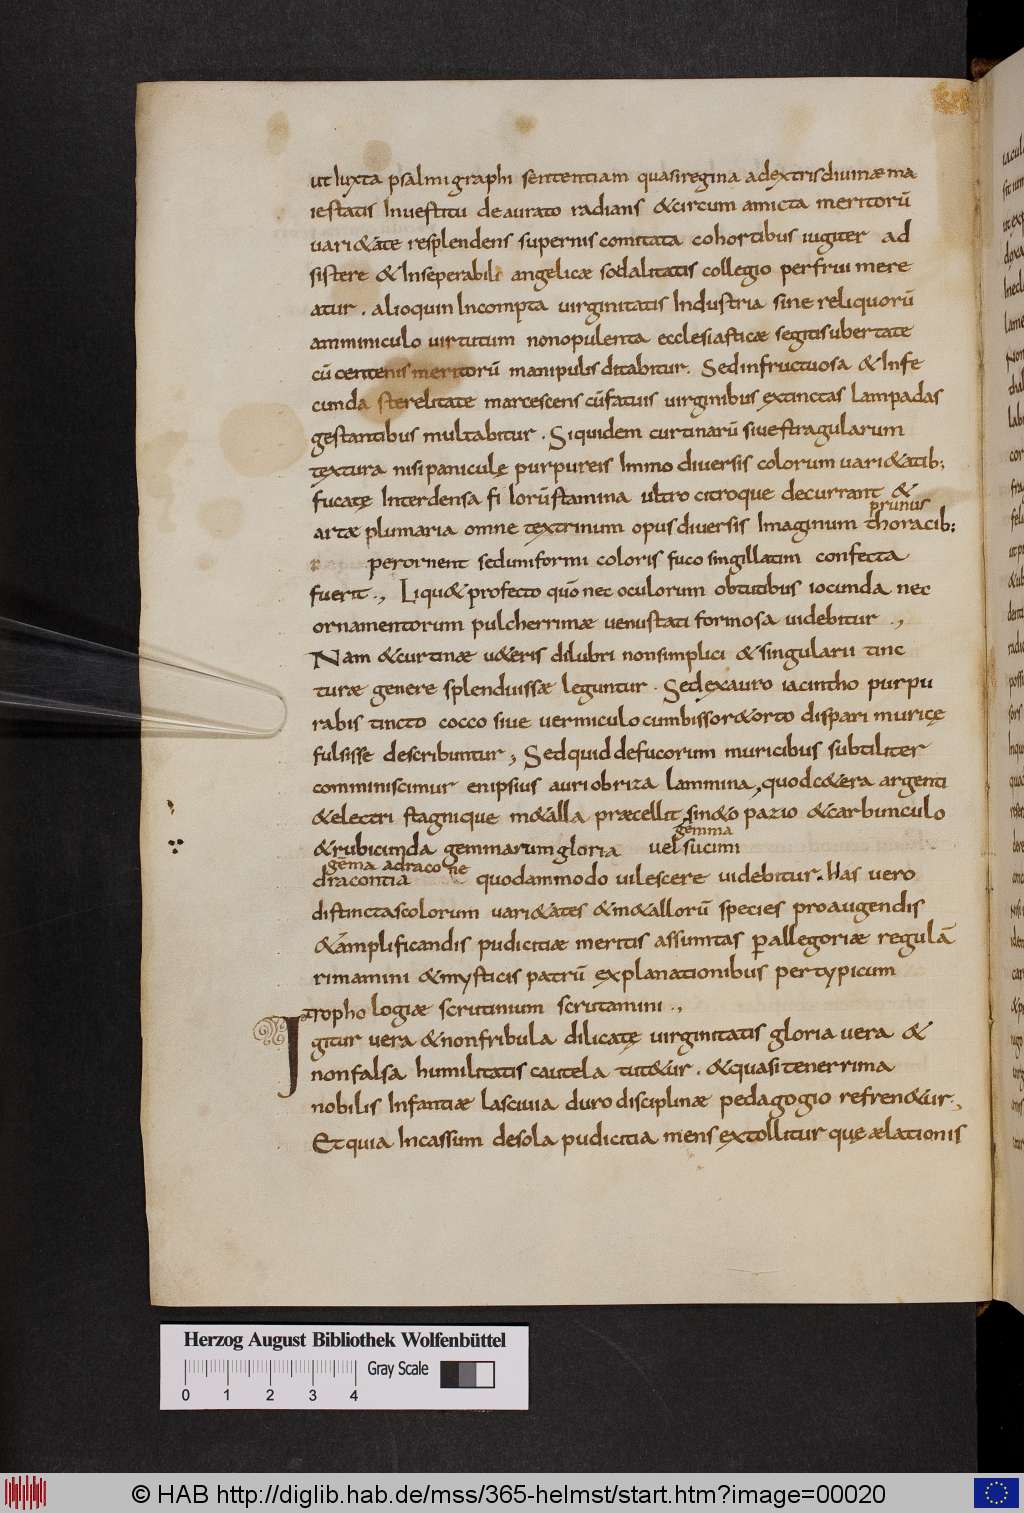 ut iuxta psalmi graphi sententiam quasi regina adextris diuinæ ma
iestatis Inuestitu deaurato radians & circum amicta meritorū
uari&ate resplendens supernis comitata cohortibus iugiter ad
sistere & Inseperabili angelicæ sodalitatis collegio perfrui mere
atur . alioquin Incompta uirginitatis Industria sine reliquorū
amminiculo uirtutum non opulenta ecclesiasticæ segitis ubertate
cū centenis meritorū manipulis ditabitur . Sed infructuosa & Infe
cunda sterelitate marcescens cū fatuis uirginibus extinctas lampadas
gestantibus multabitur . Siquidem curtinarū siue stragularum
textura nisi paniculę purpureis Immo diuersis colorum uari&atib;
fucatę Interdensa fi lorū stamina ultro citroque decurrant &
prunus
artæ plumaria omne textrinum opus diuersis Imaginum thoracib;
perornent sed uniformi coloris fuco singillatim confecta
fuerit ., Liqu& profecto quō nec oculorum obtutibus iocunda nec
ornamentorum pulcherrimæ uenustati formosa uidebitur .,
Nam & curtinæ u&eris dilubri non simplici & singularii tinc
turæ genere splenduissæ leguntur . Sed ex auro iacintho purpu
rabis tincto cocco siue uermiculo cum bisso r&orto dispari muricę
fulsisse describuntur ; Sed quid de fucorum muricibus subtiliter
comminiscimur en ipsius auri obriza lammina, quod c&era argenti
& electri stagnique m&alla præcellit sin&o pazio & carbunculo
gemma
& rubicunda gemmarum gloria uel sucini
gēma adracone
dracontia quodammodo uilescere uidebitur . Has uero
distinctas colorum uari&ates & m&allorū species pro augendis
& āmplificandis pudicitiæ meritis assumtas p allegoriæ regulā
rimamini & mysticis patrū explanationibus per typicum
tropho logiæ scrutinium scrutamini .,
Igitur uera & non fribula dilicatę uirginitatis gloria uera &
non falsa humilitatis cautela tut&ur . & quasi tenerrima
nobilis Infantiæ lasciuia duro disciplinæ pedagogio refren&ur .,
Et quia Incassum de sola pudicitia mens extollitur quę ælationis
Herzog August Bibliothek Wolfenbüttel
Gray Scale
0 1 2 3 4
© HAB http://diglib.hab.de/mss/365-helmst/start.htm?image=00020